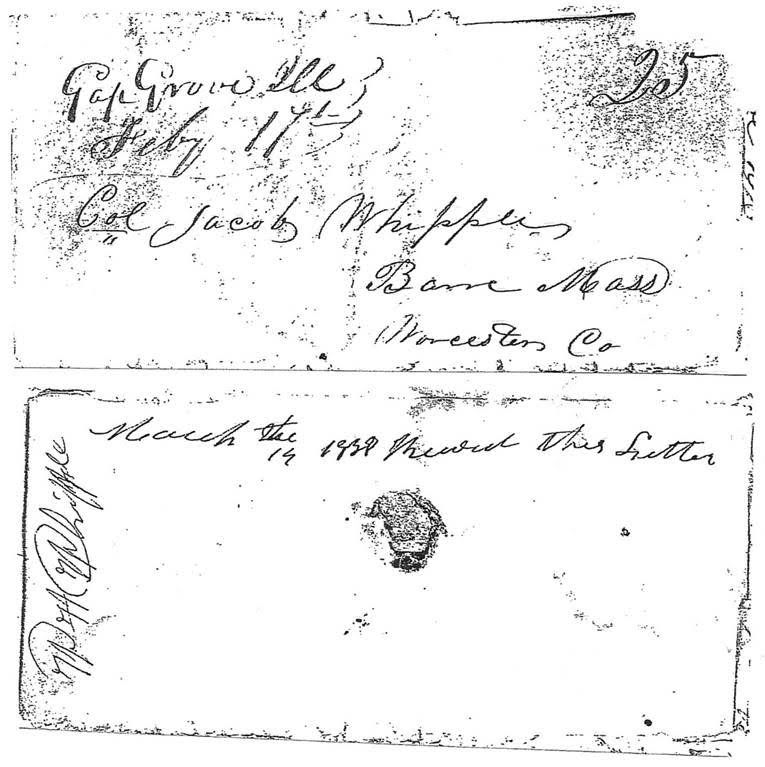 Gap Grove Ill
Feby 17th
25
Col Jacob Whipple
Barre Mass
Worcester Co
March the 14 1838 Received this Letter
Whipple